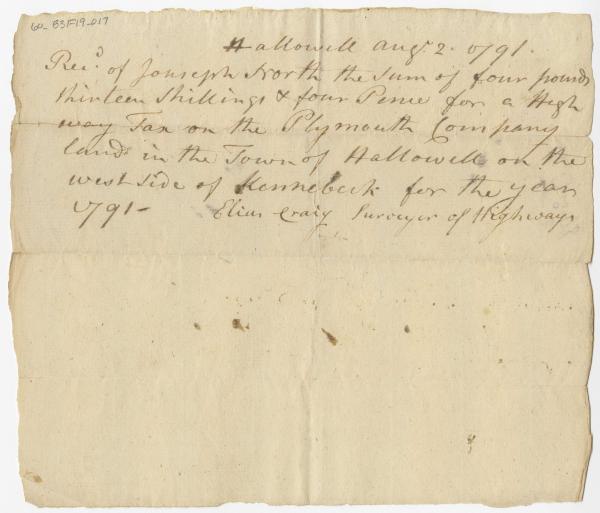 60_B3F19_017
Hallowell Augt. 2. 1791.
Recd. of Jonseph North the sum of four pounds
thirteen Shillings & four Pence for a High
way Tax on the Plymouth Company
lands in the Town of Hallowell on the
west side of Kennebeck for the year
1791 -    Elias Craig Surveyor of Highways